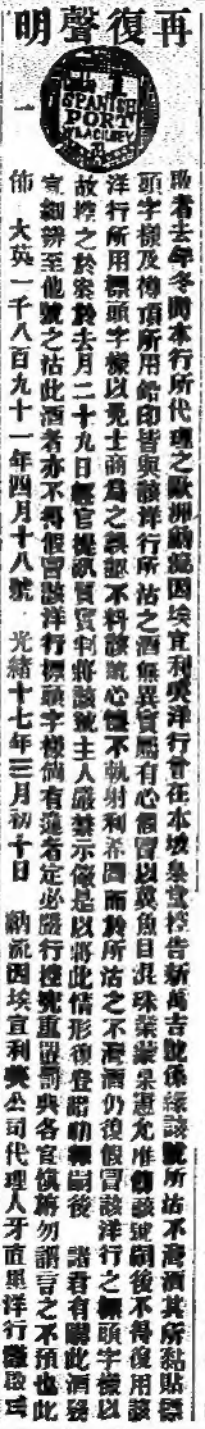 再復聲明
SPANISH
PORT
啟者去年冬間本行所代理之歐洲納流因埃宜利唤洋行曾在本坡臬堂控告新萬吉號係緣該號所沽不灣酒其所黏貼標
頭字様及樽頂所用鉛印皆與該洋行所沽之酒無異實屬有心假冒以冀魚目混珠業蒙臬憲允准飭該號嗣後不得復用該
洋行所用標頭字様以免士商為之誤認不料該號心懷不軌射利希圖而於所沽之不灣酒仍復假冒該洋行之標頭字様以
故控之於案於去月二十九日經官提訊質實判將該號主人嚴禁示儆是以將此情形復登諸叻報嗣後 諸君有購此酒務
宜細辨至他號之沽此酒者亦不得假冒該洋行標頭字様倘有違者定必嚴行控究重置罰典各宜慎旃勿謂言之不預也此
佈 大英一千八百九十一年四月十八號 光緒十七年三月初十日 納流因埃宜利唤公司代理人牙直鼎洋行謹啟